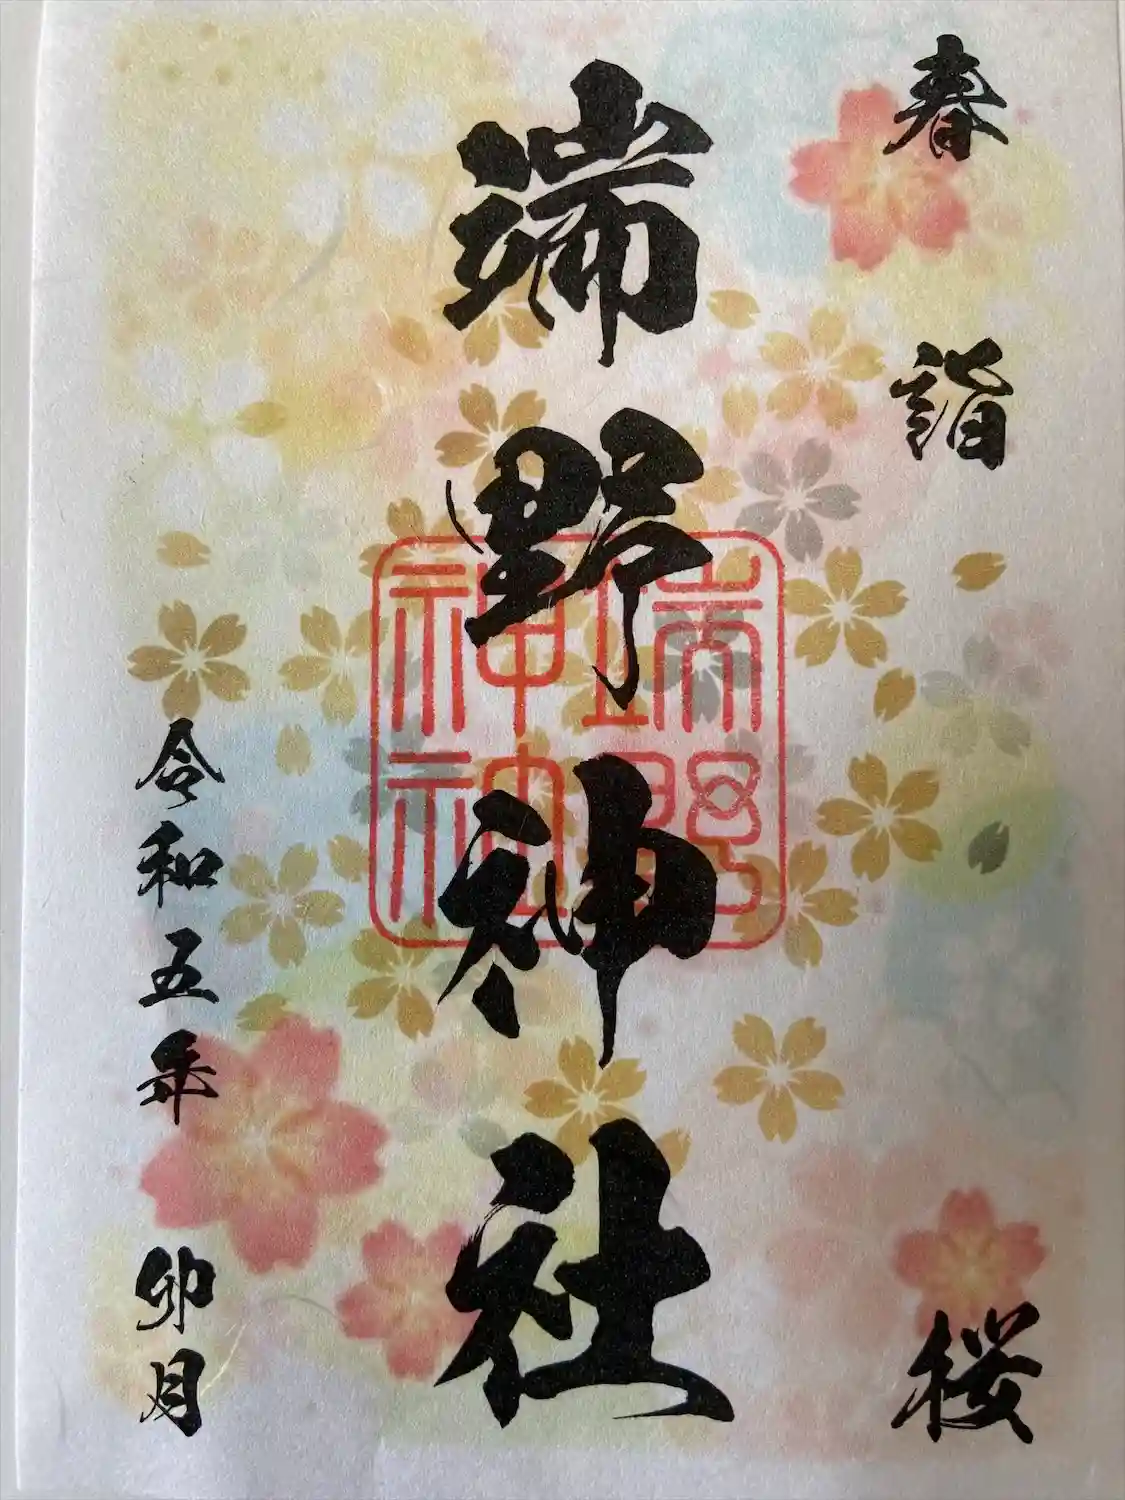 春詣 桜
端野神社
端野
神社
令和五年 卯月